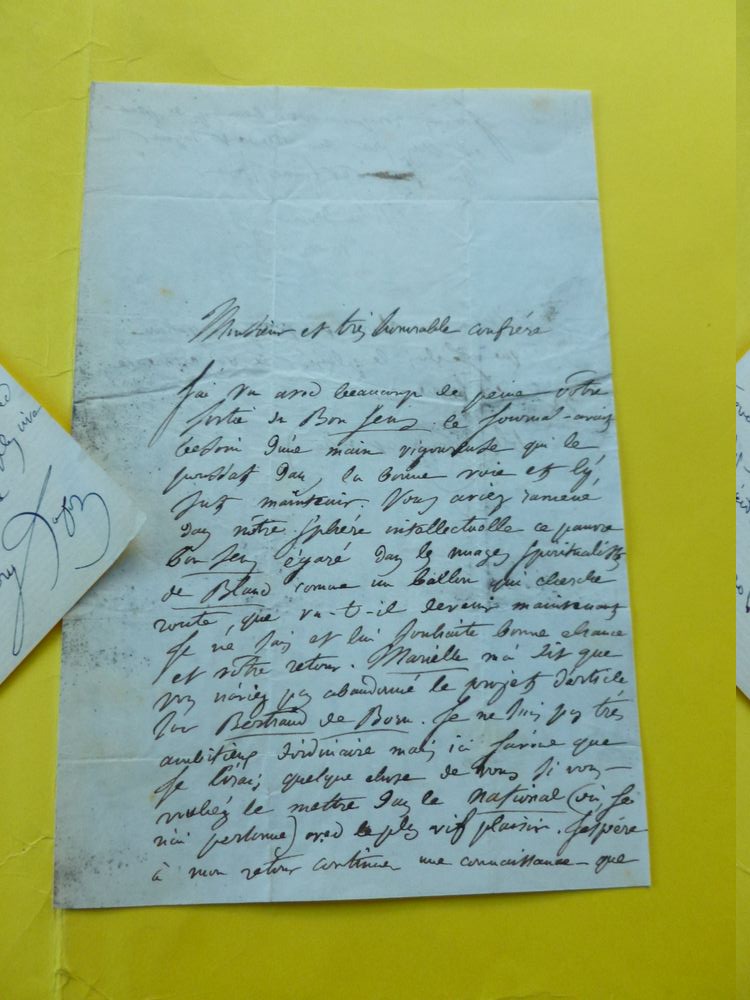 Monsieur et très honorable confrère
J'ai vu avec beaucoup de peine votre
sortie du Bon Sens le Journal avait
besoin d'une main vigoureuse qui le
poussat dans la bonne voie et l'y
sut maintenir. Vous aviez ramené
dans notre sphère intellectuelle ce pauvre
bon sens égaré dans les nuages spiritualistes
de Blanc comme un ballon qui cherche
route, que va-t-il devenir maintenant
Je ne sais et lui souhaite bonne chance
et votre retour. Marielle m'a dit que
vous n'aviez pas abandonné le projet d'article
sur Bertrand de Born. Je ne suis pas très
ambitieux d'ordinaire mais ici j'avoue que
je lirais quelque chose de vous si vous
vouliez le mettre dans le National (où je
n'ai personne) avec le plus vif plaisir. J'espère
à mon retour continuer une connaissance que